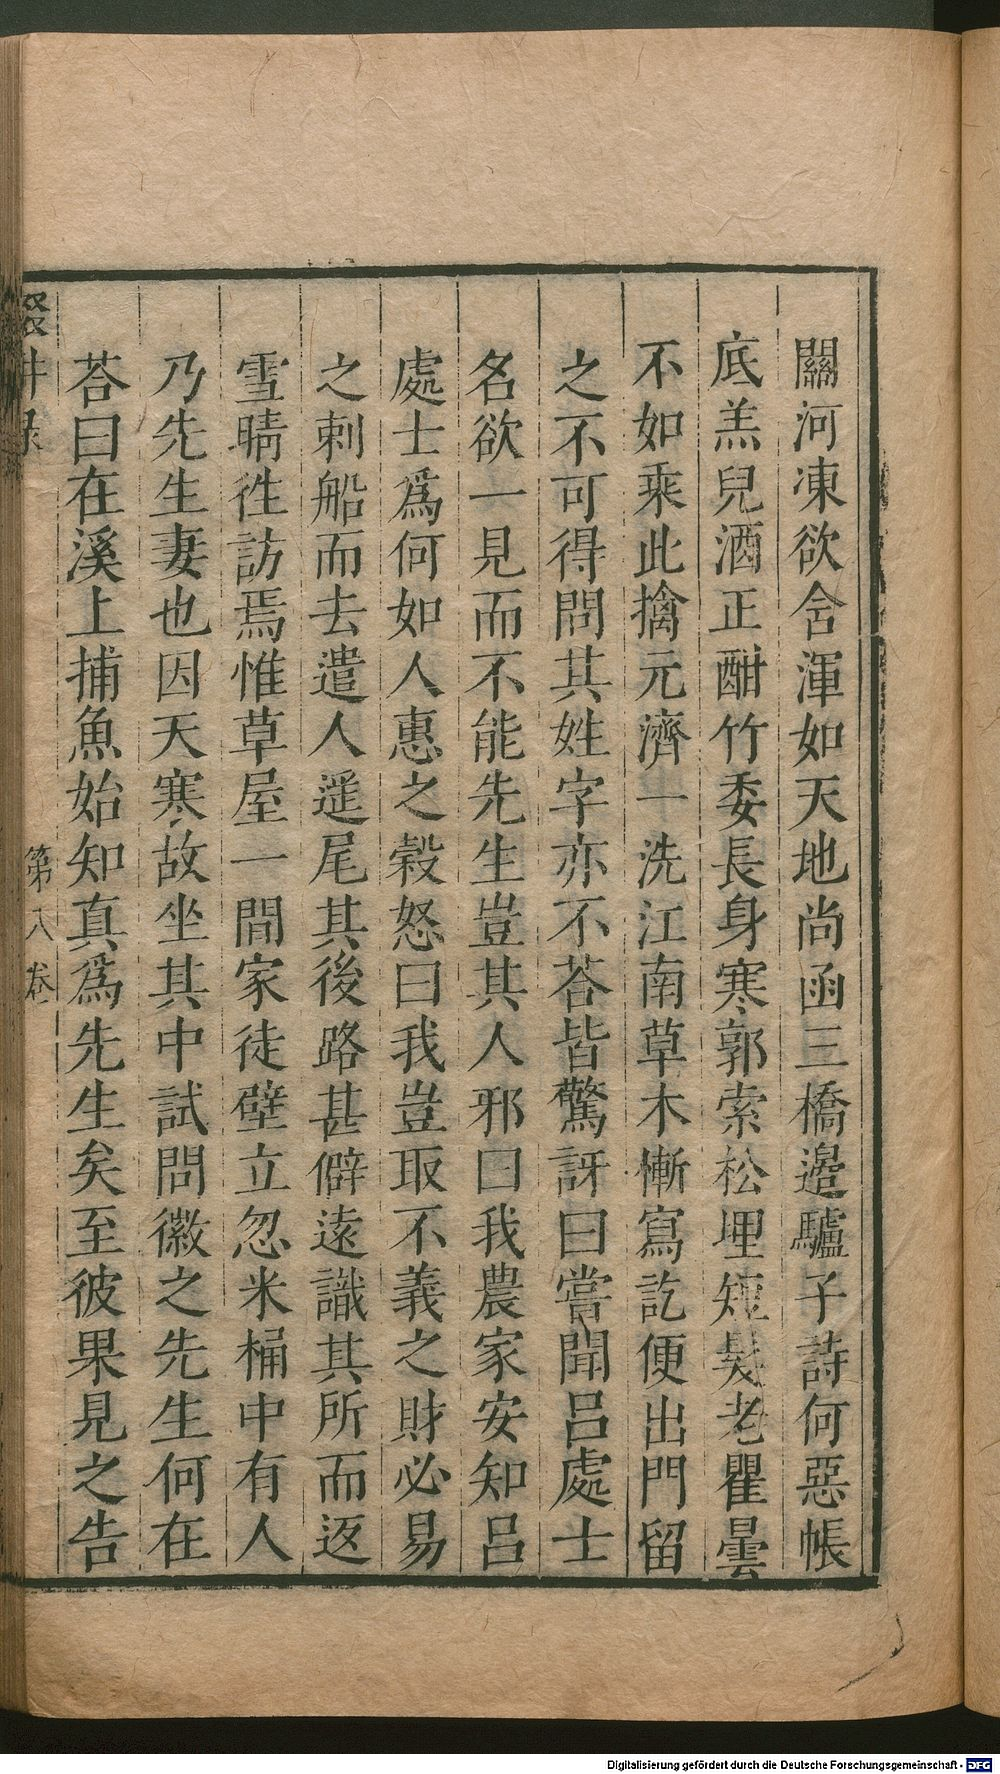 關河凍欲含渾如天地尚函三橋邊驢子詩何惡帳
底羔兒酒正酣竹委長身寒郭索松埋短髮老瞿曇
不如乘此擒元濟一洗江南草木慚寫訖便出門留
之不可得問其姓字亦不荅皆驚訝曰嘗聞呂處士
名欲一見而不能先生豈其人邪曰我農家安知呂
處士爲何如人惠之穀怒曰我豈取不義之財必易
之刺船而去遣人遥尾其後路甚僻遠識其所而返
雪晴徃訪焉惟草屋一間家徒壁立忽米桶中有人
乃先生妻也因天寒故坐其中試問徽之先生何在
荅曰在溪上捕魚始知真爲先生矣至彼果見之告
第八卷
Digitalisierung gefördert durch die Deutsche Forschungsgemeinschaft - DFG